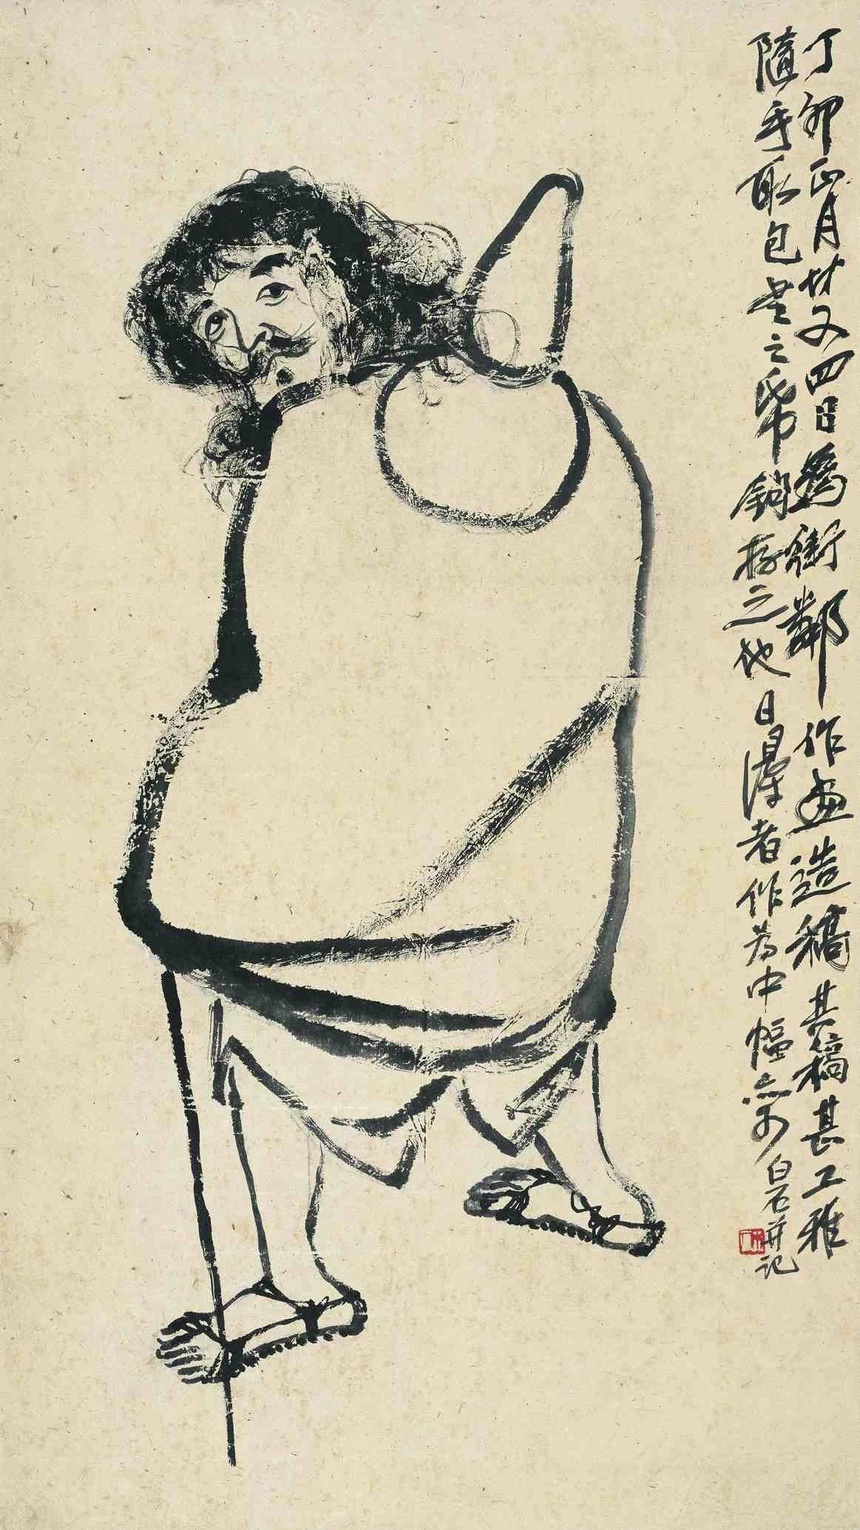 丁卯正月廿又四日為街鄰作畫造稿其稿甚工雅
隨手取包書之帋鉤存之他日得者作為中幅亦可
白石并記